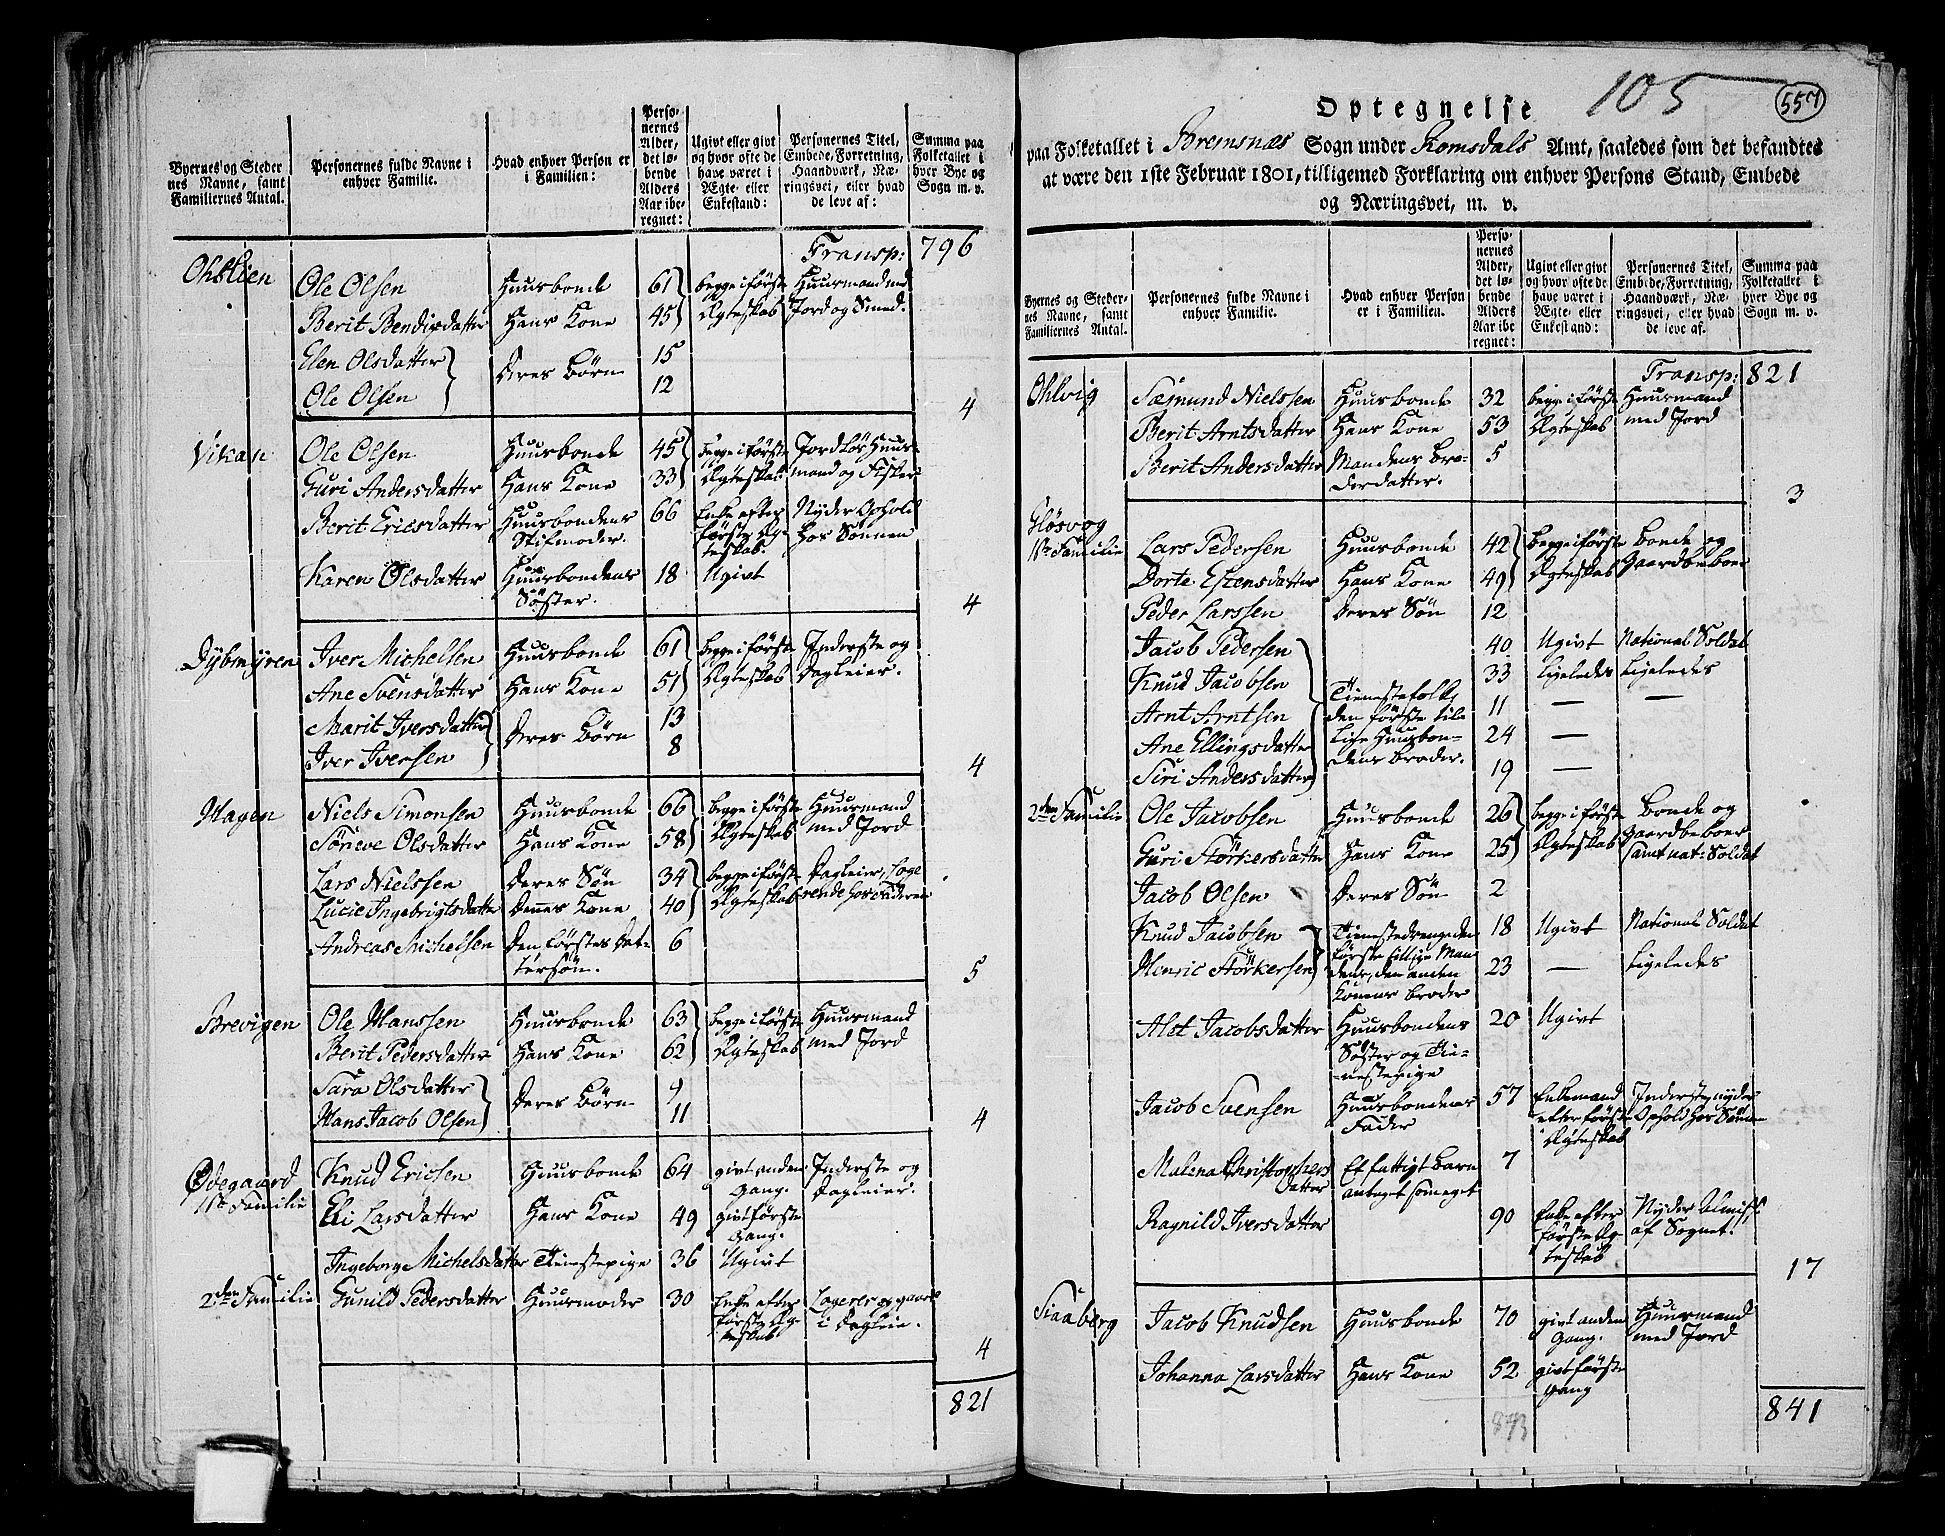 Byernes og Steder
nes Navne, samt
Familiernes Antal.
Personernes fulde Navne i
enhver Familie.
Hvad enhver Person er
i Familien:
Perso-
nernes
Alder,
det lø-
bende
Alders
Aar ibe-
regnet:
Ugivt eller givt
og hvor ofte de
have været i
Ægte- eller
Enkestand:
Personernes Titel,
Embede, Forretning,
Haandværk, Næ-
ringsvei, eller hvad
de leve af:
Summa paa
Folketallet i
hver Bye og
Sogn m. v.
Transp: 796
Ohslien Ole Olsen Huusbonde 61 begge i første Huusmand med
Berit Bendixdatter Hans Kone 45 Ægteskab Jord og Smed.
Elen Olsdatter 15
Deres Børn
Ole Olsen 12
4
Vikan Ole Olsen Huusbonde 45 begge i første Jordløs Huus-
Guri Andersdatter Hans Kone 33 Ægteskab mand og Fisker
Berit Ericsdatter Huusbondens 66 Enke efter Nyder Ophold
Stifmoder. første Æg- hos Sønnen
teskab.
Karen Olsdatter Huusbondens 18 Ugivt
Søster.
4
Dybmyren Iver Michelsen Huusbonde 61 begge i første Inderste og
Ane Svensdatter Hans Kone 51 Ægteskab Dagleier.
Marit Iversdatter 13
Deres Børn
Iver Iversen 8
4
Hagen Niels Simonsen Huusbonde 66 begge i første Huusmand
Søneve Olsdatter Hans Kone 58 Ægteskab med Jord
Lars Nielssen Deres Søn 34 begge i første Dagleier, Loge
Lucie Ingebrigtsdatter Dennes Kone 40 Ægteskab rende hos Faderen
Andreas Michelsen Den førstes Dat- 6
tersøn.
5
Brevigen Ole Hanssen Huusbonde 63 begge i første Huusmand
Berit Pedersdatter Hans Kone 62 Ægteskab med Jord
Sara Olsdatter 9
Deres Børn
Hans Jacob Olsen 11
4
Ødegaard Knud Ericsen Huusbonde 64 givt anden Inderste og
1ste Familie Gang. Dagleier.
Eli Larsdatter Hans Kone 49 givt første
Gang.
Ingeborg Michelsdatter Tienestepige 36 Ugivt
2den Familie Gunild Pedersdatter Huusmoder 30 Enke efter Logerer og gaaer
første Æg- i Dagleie.
teskab
4
821
105
557
Optegnelse
paa Folketallet i Bremsnæs Sogn under Romsdals Amt, saaledes som det befandtes
at være den 1ste Februar 1801, tilligemed Forklaring om enhver Persons Stand, Embede
og Næringsvei, m. v.
Byernes og Steder-
nes Navne, samt
Familiernes Antal.
Personernes fulde Navne i
enhver Familie.
Hvad enhver Person
er i Familien.
Perso-
nernes
Alder,
det lø-
bende
Alders
Aar ibe
regnet:
Ugivt eller givt
og hvor ofte de
have været i
Ægte- eller
Enkestand:
Personernes Titel,
Embede, Forretning,
Haandværk, Næ-
ringsvei, eller hvad
de leve af.
Summa paa
Folketallet i
hver Bye og
Sogn m. v.
Transp: 821
Ohlvig Sæmund Nielssen Huusbonde 32 begge i første Huusmand
Berit Arntsdatter Hans Kone 53 Ægteskab med Jord
Berit Andersdatter Mandens Bro- 5
derdatter.
3
Gløsvog
1ste Familie Lars Pedersen Huusbonde 42 begge i første Bonde og
Dorte Estensdatter Hans Kone 49 Ægteskab Gaardbeboer
Peder Larssen Deres Søn 12
Jacob Pedersen 40 Ugivt National Soldat
Knud Jacobsen Tienestefolk, 33 Ligeledes Ligeledes
Arnt Arntsen den første til- 11 — —
Ane Ellingsdatter lige Huusbon- 24 —
Siri Andersdatter dens broder. 19 —
2den Familie Ole Jacobsen Huusbonde 26 begge i første Bonde og
Guri Størkersdatter Hans Kone 25 Ægteskab Gaardbeboer
samt nat: Soldat
Jacob Olsen Deres Søn 2
Knud Jacobsen Tienestedrenge den 18 Ugivt National Soldat
Henric Størkersen første tillige Man 23 — Ligeledes
dens, den anden
Konens broder
Alet Jacobsdatter Huusbondens 20 Ugivt
Søster og Tie-
nestepige
Jacob Svensen Huusbondens 57 Enkemand Inderste nyder
Fader efter første Ophold hos Sønnen
Ægteskab
Malena Christophers Et fattigt Barn 7
datter antaget som eget
Ragnild Iversdatter 90 Enke efter Nyder Almisse
første Æg- af Sognet.
teskab
17
Siaaberg Jacob Knudsen Huusbonde 70 givt anden Huusmand
Gang. med Jord
Johanna Larsdatter Hans Kone 52 givt første
Gang
841